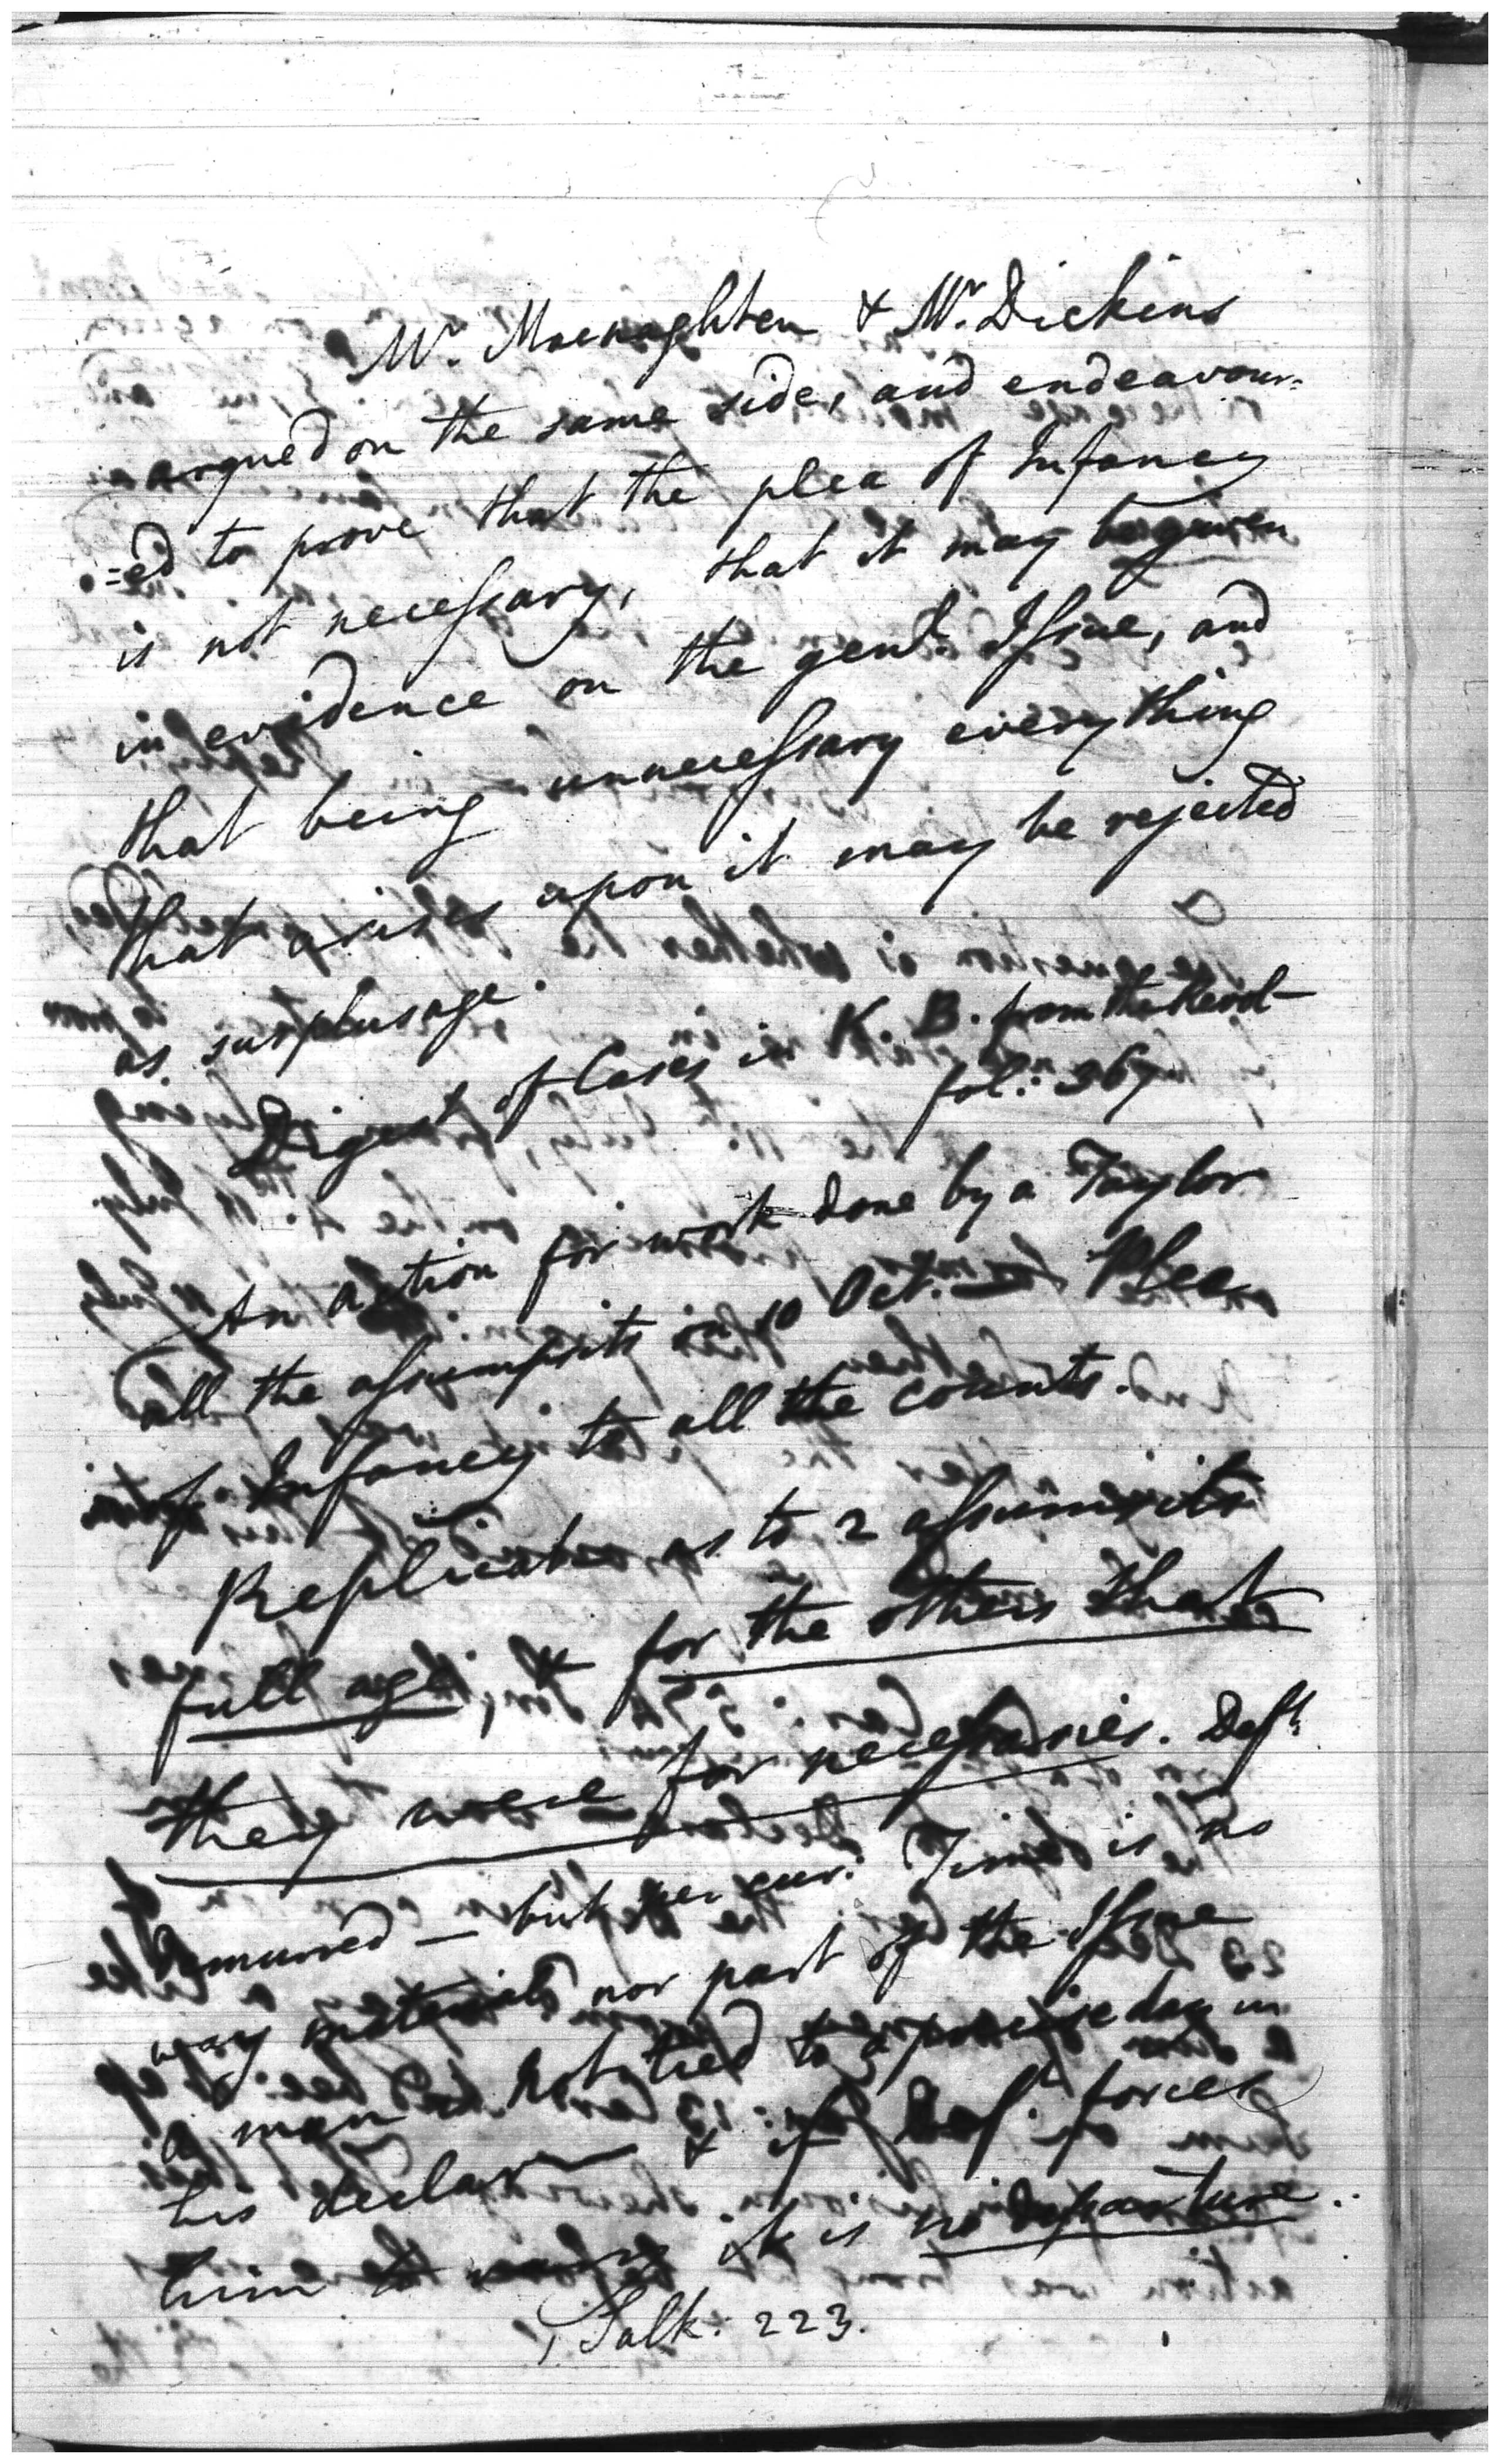 Mr. Macnaghten & Mr. Dickins
argued on the same side, and endeavour=
=ed to prove that the plea of Infancy
is not necessary, that it may be given
in evidence on the genl. Issue, and
that being unnecessary every thing
that arises upon it may be rejected
as surplusage.
Digest of Cases in K. B. from the Revol-
fol: 367
An action for work done by a Taylor
all the assumpsits on 10 Oct. Plea
of Infancy to all the counts.
Replicatn as to 2 assumpsits
full age & for the others that
they were for necessaries. Deft.
demurred — but per cur: Time is no
way material nor part of the Issue
a man is not tied to a precise day in
his declarn & if Deft. forces
him to vary it is no departure.
1 Salk. 223.